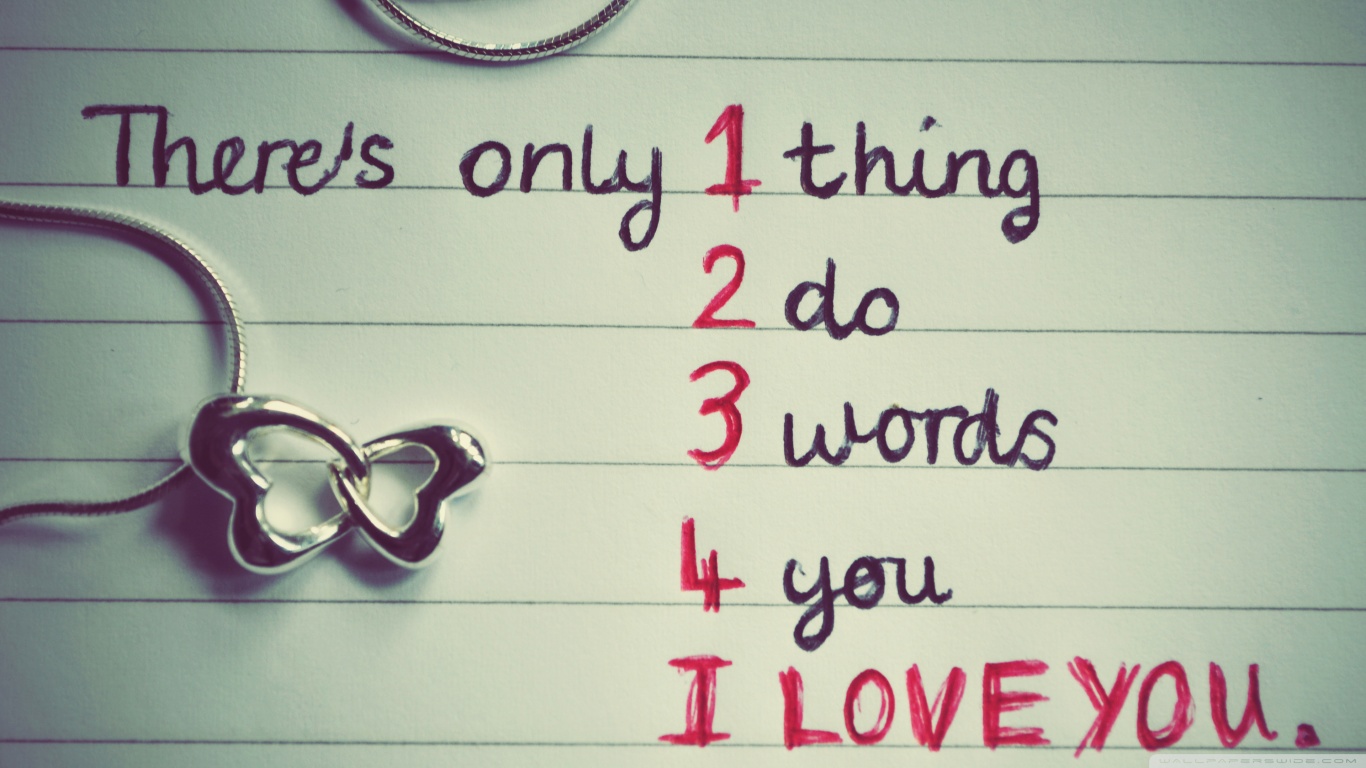 There's only 1 thing
2 do
3 words
4 you
I LOVE YOU.
WALLPAPERSWIDE.COM